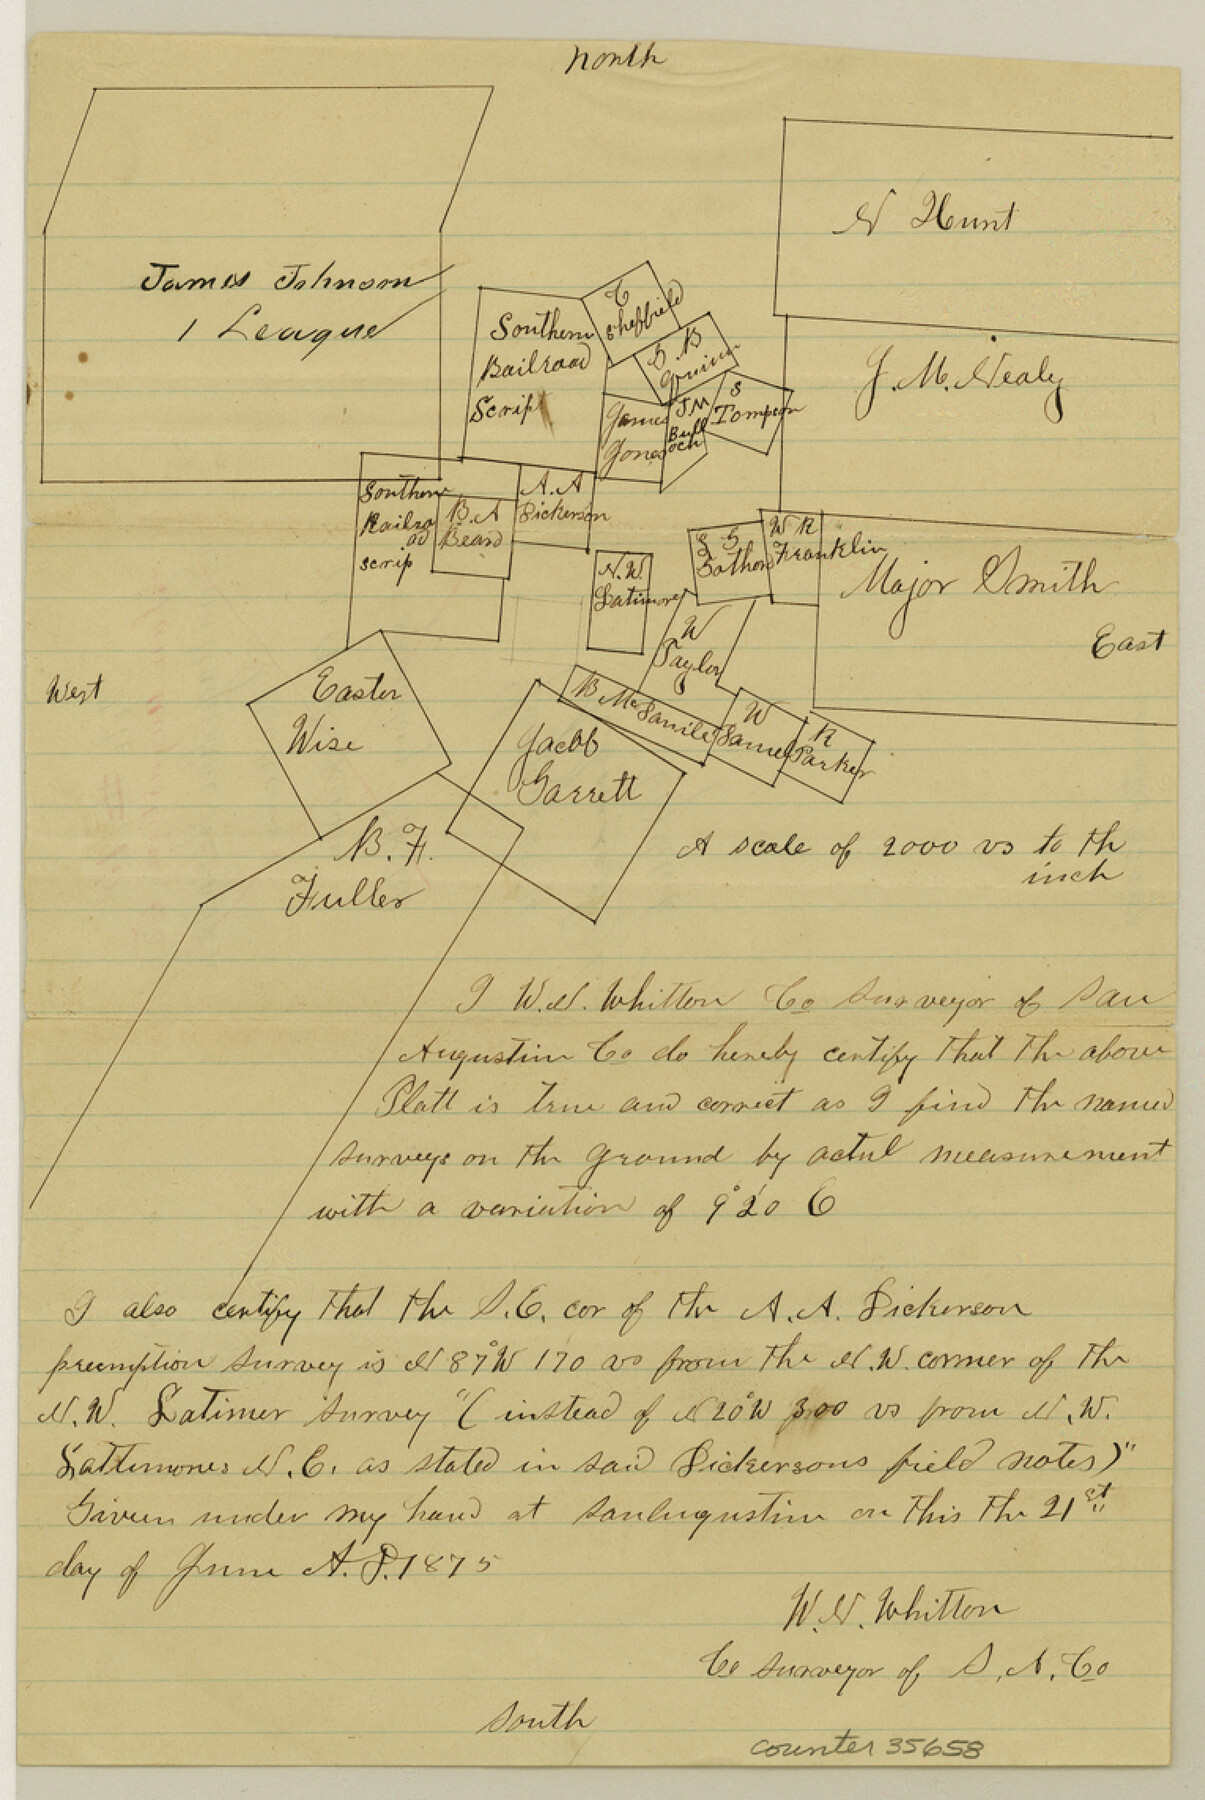 North
N Hunt
James Johnson
1 League
C
Sheffield
Southern
Railroad
Script
B.B
Guinn
J. M. Nealy
S
Tompson
James
Jones
J M
Bull
och
Southern
Railro
ad
scrip
B. A
Beard
A. A
Dickerson
N. W.
Latimore
W R
Franklin
Major Smith
East
W
Taylor
West
Easter
Wise
B Mc Danile
W
R
Parker
Jacob
Garrett
B. F.
Fuller
A scale of 2000 vs to th
inch
I W. N. Whitton Co Surveyor of San
Augustin Co do hereby certify that the above
Platt is true and correct as I find the named
surveys on the ground by actul measurement
with a variation of 9° 20' E
I also certify that the S. E. cor of the A. A. Dickerson
preemption survey is N 87° W 170 vs from the N. W. corner of the
N. W. Latimer survey "( instead of N 20° W 300 vs from N. W.
Lattimores N. E. as stated in said Dickersons field notes)"
Given under my hand at SanAugustin on this the 21st
day of June A. D. 1875
W. N. Whitton
Co surveyor of S. A. Co
South
counter 35658